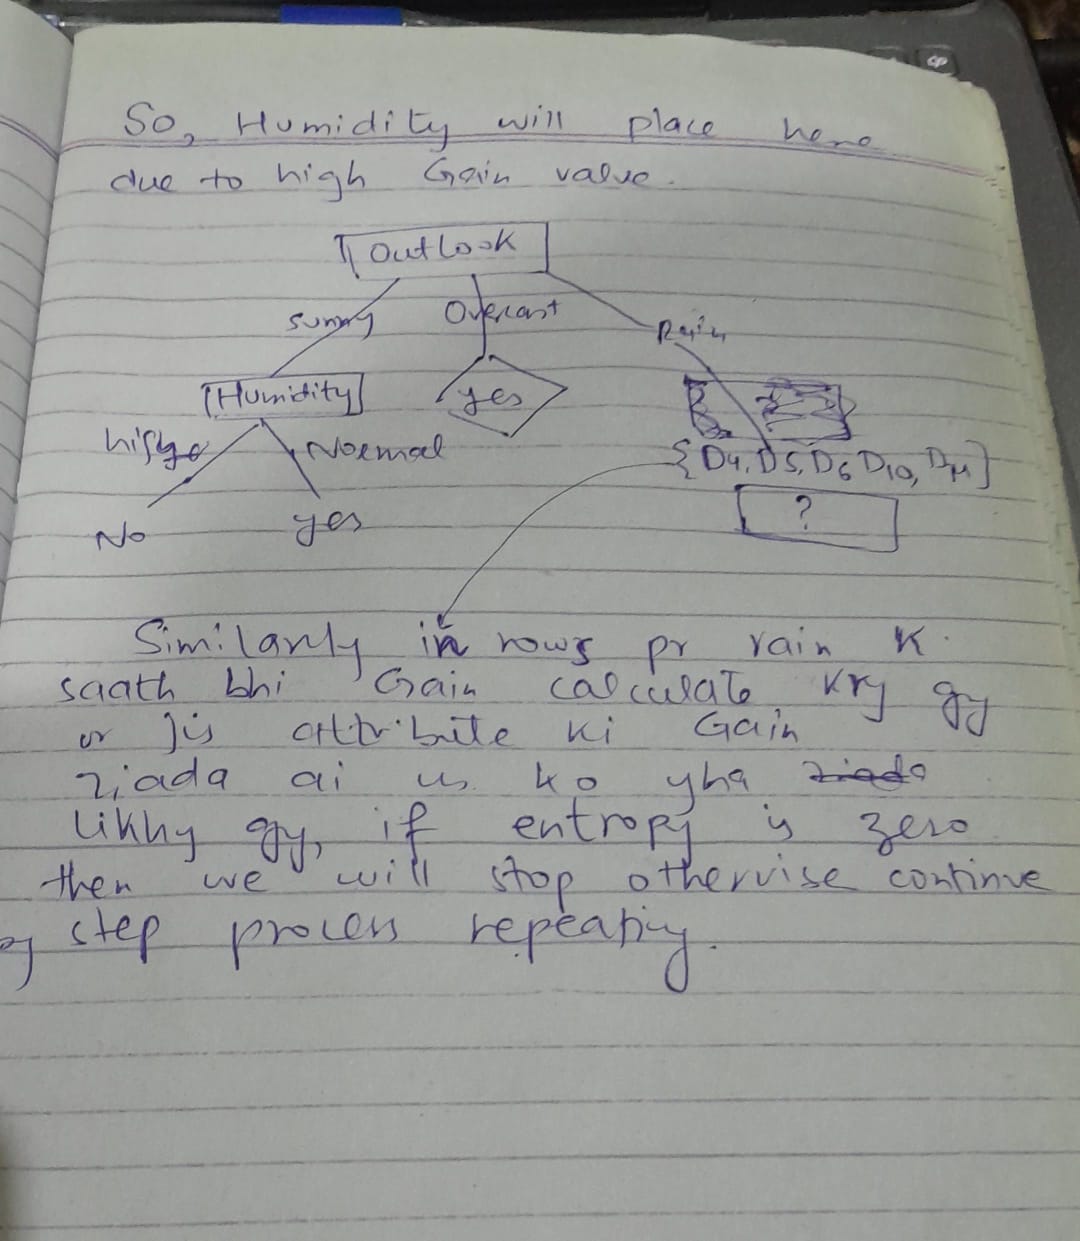 So, Humidity will place here
due to high Gain value.
Outlook
Sunny Overcast Rain
Humidity yes
high Normal
{D4, D5, D6 D10, D14}
?
No yes
Similarly in rows pr rain K
saath bhi Gain calculate kry gy
or jis attribute ki Gain
ziada ai us ko yha
likhy gy, if entropy is zero
then we will stop othervise continue
by step process repeating.